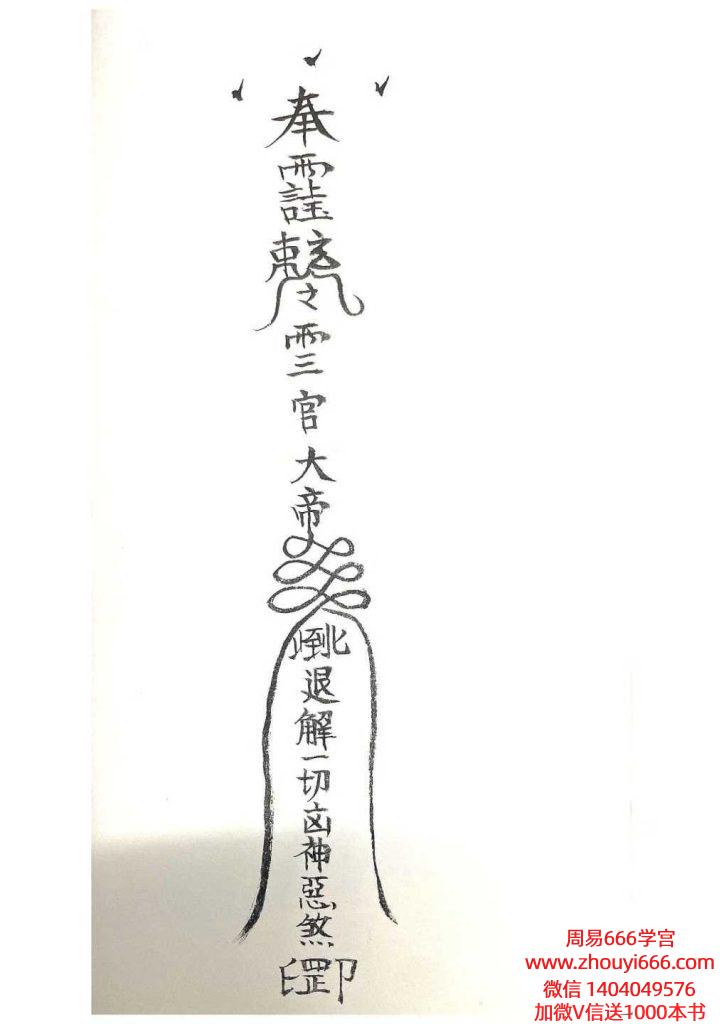 奉之三官大帝
退解一切凶神惡煞
罡
周易666学宫
www.zhouyi666.com
微信 1404049576
加微V信送1000本书